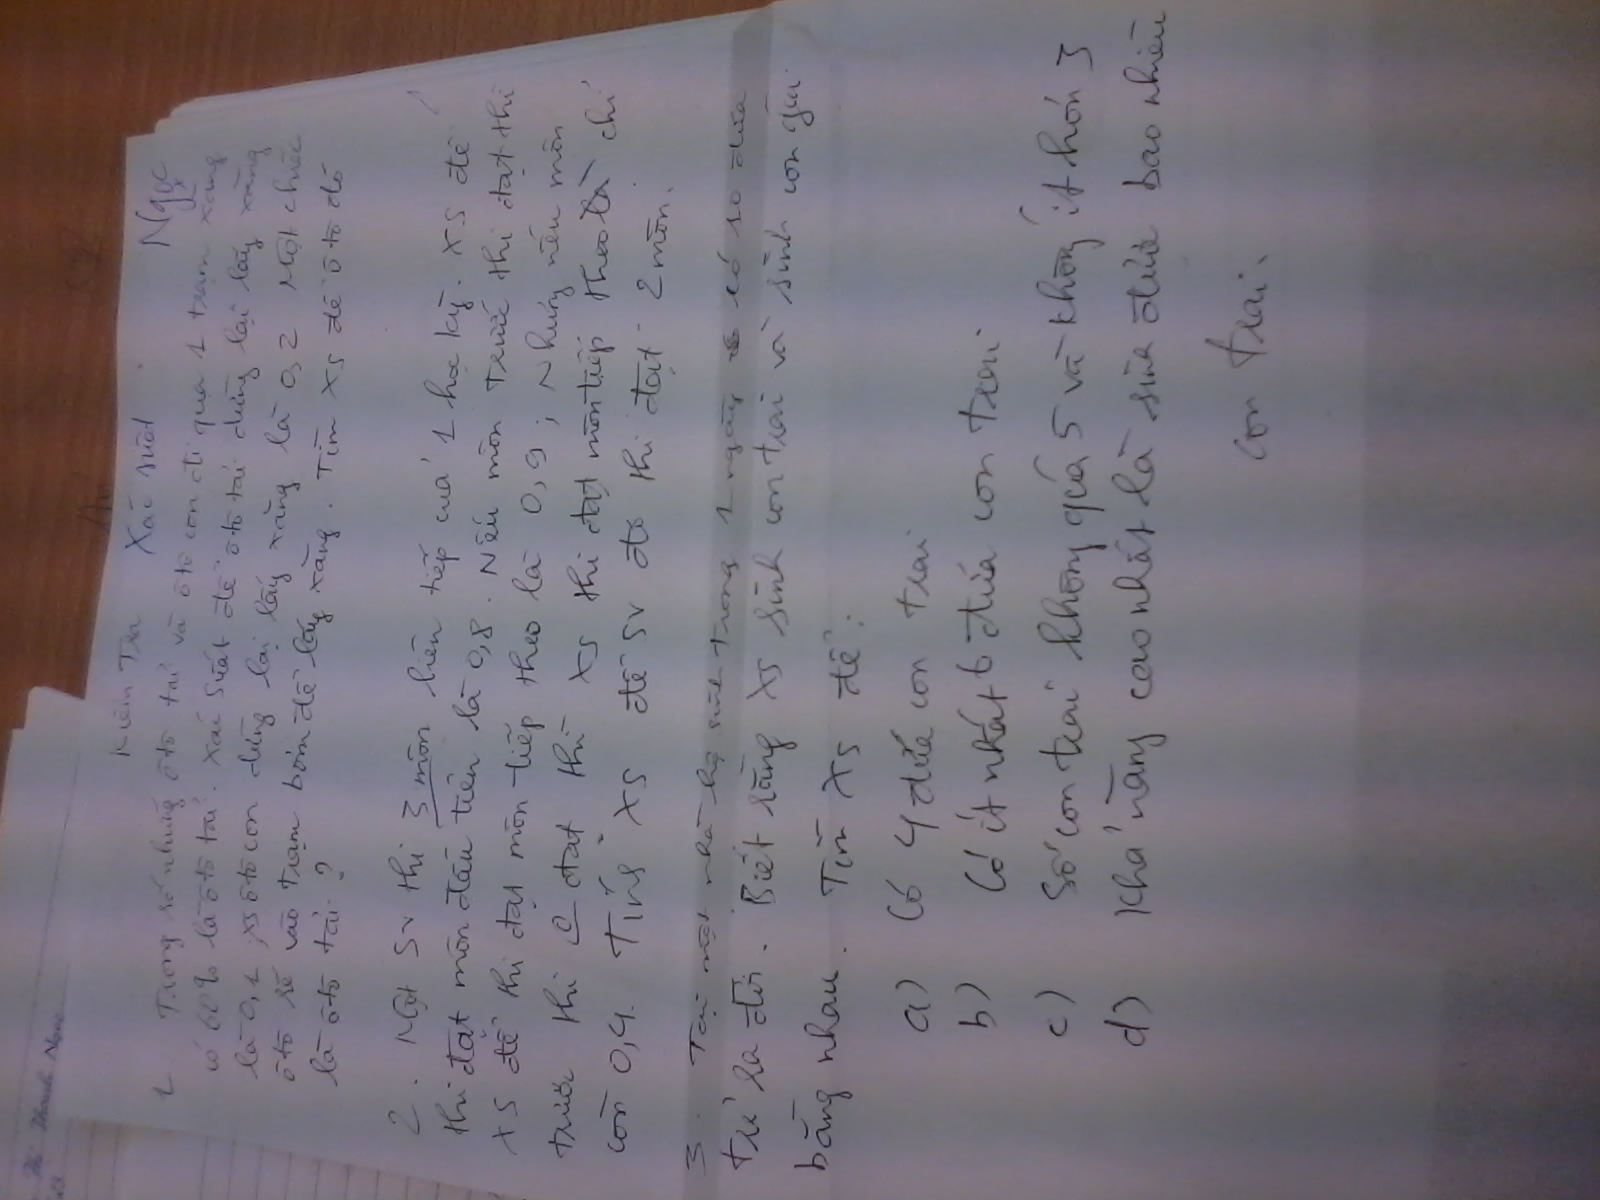 Thị Thanh Ngọc
Kiểm Tra Xác suất Ngọc
1 Trong số những ôtô tải và ôtô con đi qua 1 trạm xăng
có 60% là ôtô tải. Xác suất để ôtô tải dừng lại lấy xăng
là 0,1, xs ôtô con dừng lại lấy xăng là 0,2 Một chiếc
ôtô sẽ vào trạm bơm để lấy xăng. Tìm XS để ôtô đó
là ôtô tải?
2. Một SV thi 3 môn liên tiếp của 1 học kỳ. XS để
thi đạt môn đầu tiên là 0,8. Nếu môn trước thi đạt thì
XS để thi đạt môn tiếp theo là 0,9; Nhưng nếu môn
trước thi đạt thì XS thi đạt môn tiếp theo là chỉ
còn 0,4. Tính XS để SV đó thi đạt 2 môn.
3. Tại một nhà hộ sinh trong 1 ngày có 10 đứa
trẻ ra đời. Biết rằng XS sinh con trai và sinh con gái
bằng nhau. Tìm XS để:
a) Có 4 đứa con trai
b) Có ít nhất 6 đứa con trai
c) Số con trai không quá 5 và không ít hơn 3
d) Khả năng cao nhất là sinh được bao nhiêu
con trai.